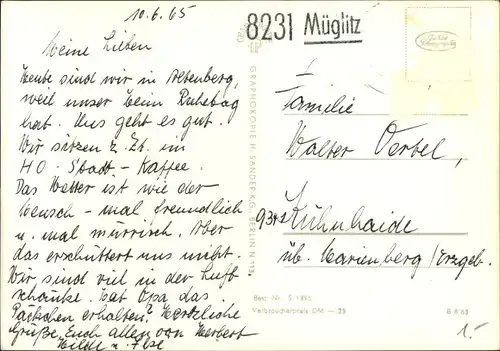 10.6.65
Meine Lieben
Heute sind wir in Altenberg,
weil unser Heim Ruhetag
hat. Uns geht es gut.
Wir sitzen z. Zt. im
HO-Stadt-Kaffee.
Das Wetter ist wie der
Mensch - mal freundlich
u. mal mürrisch. Aber
das erschüttert uns nicht.
Wir sind viel in der Luft
Hat Opa das
Päckchen erhalten? Herzliche
Grüße Euch allen von Herbert
Hilde u. Ilse
GRAPHOKOPIE H. SANDER KG. BERLIN N 113
8231 Müglitz
Familie
Walter Oertel,
934 Kühnhaide
üb. Marienberg/Erzgeb.
Best.-Nr. S 1895
Verbraucherpreis DM -.25
1.-